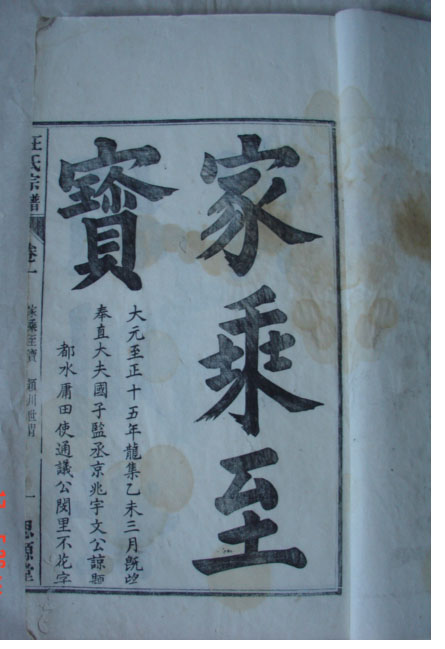 家乘至
寶
大元至正十五年龍集乙未三月既望
奉直大夫國子監丞京兆宇文公諒題
都水庸田使通議公閔里不花字
汪氏宗譜
卷一
家乘至寶
潁川世胄
一
思源堂